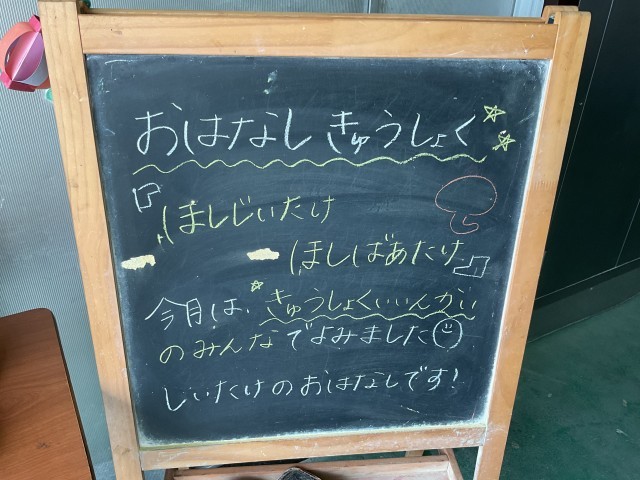 おはなしきゅうしょく
『ほしじいたけ
ほしばあたけ』
今月は、きゅうしょくいいんかい
のみんなでよみました
しいたけのおはなしです!